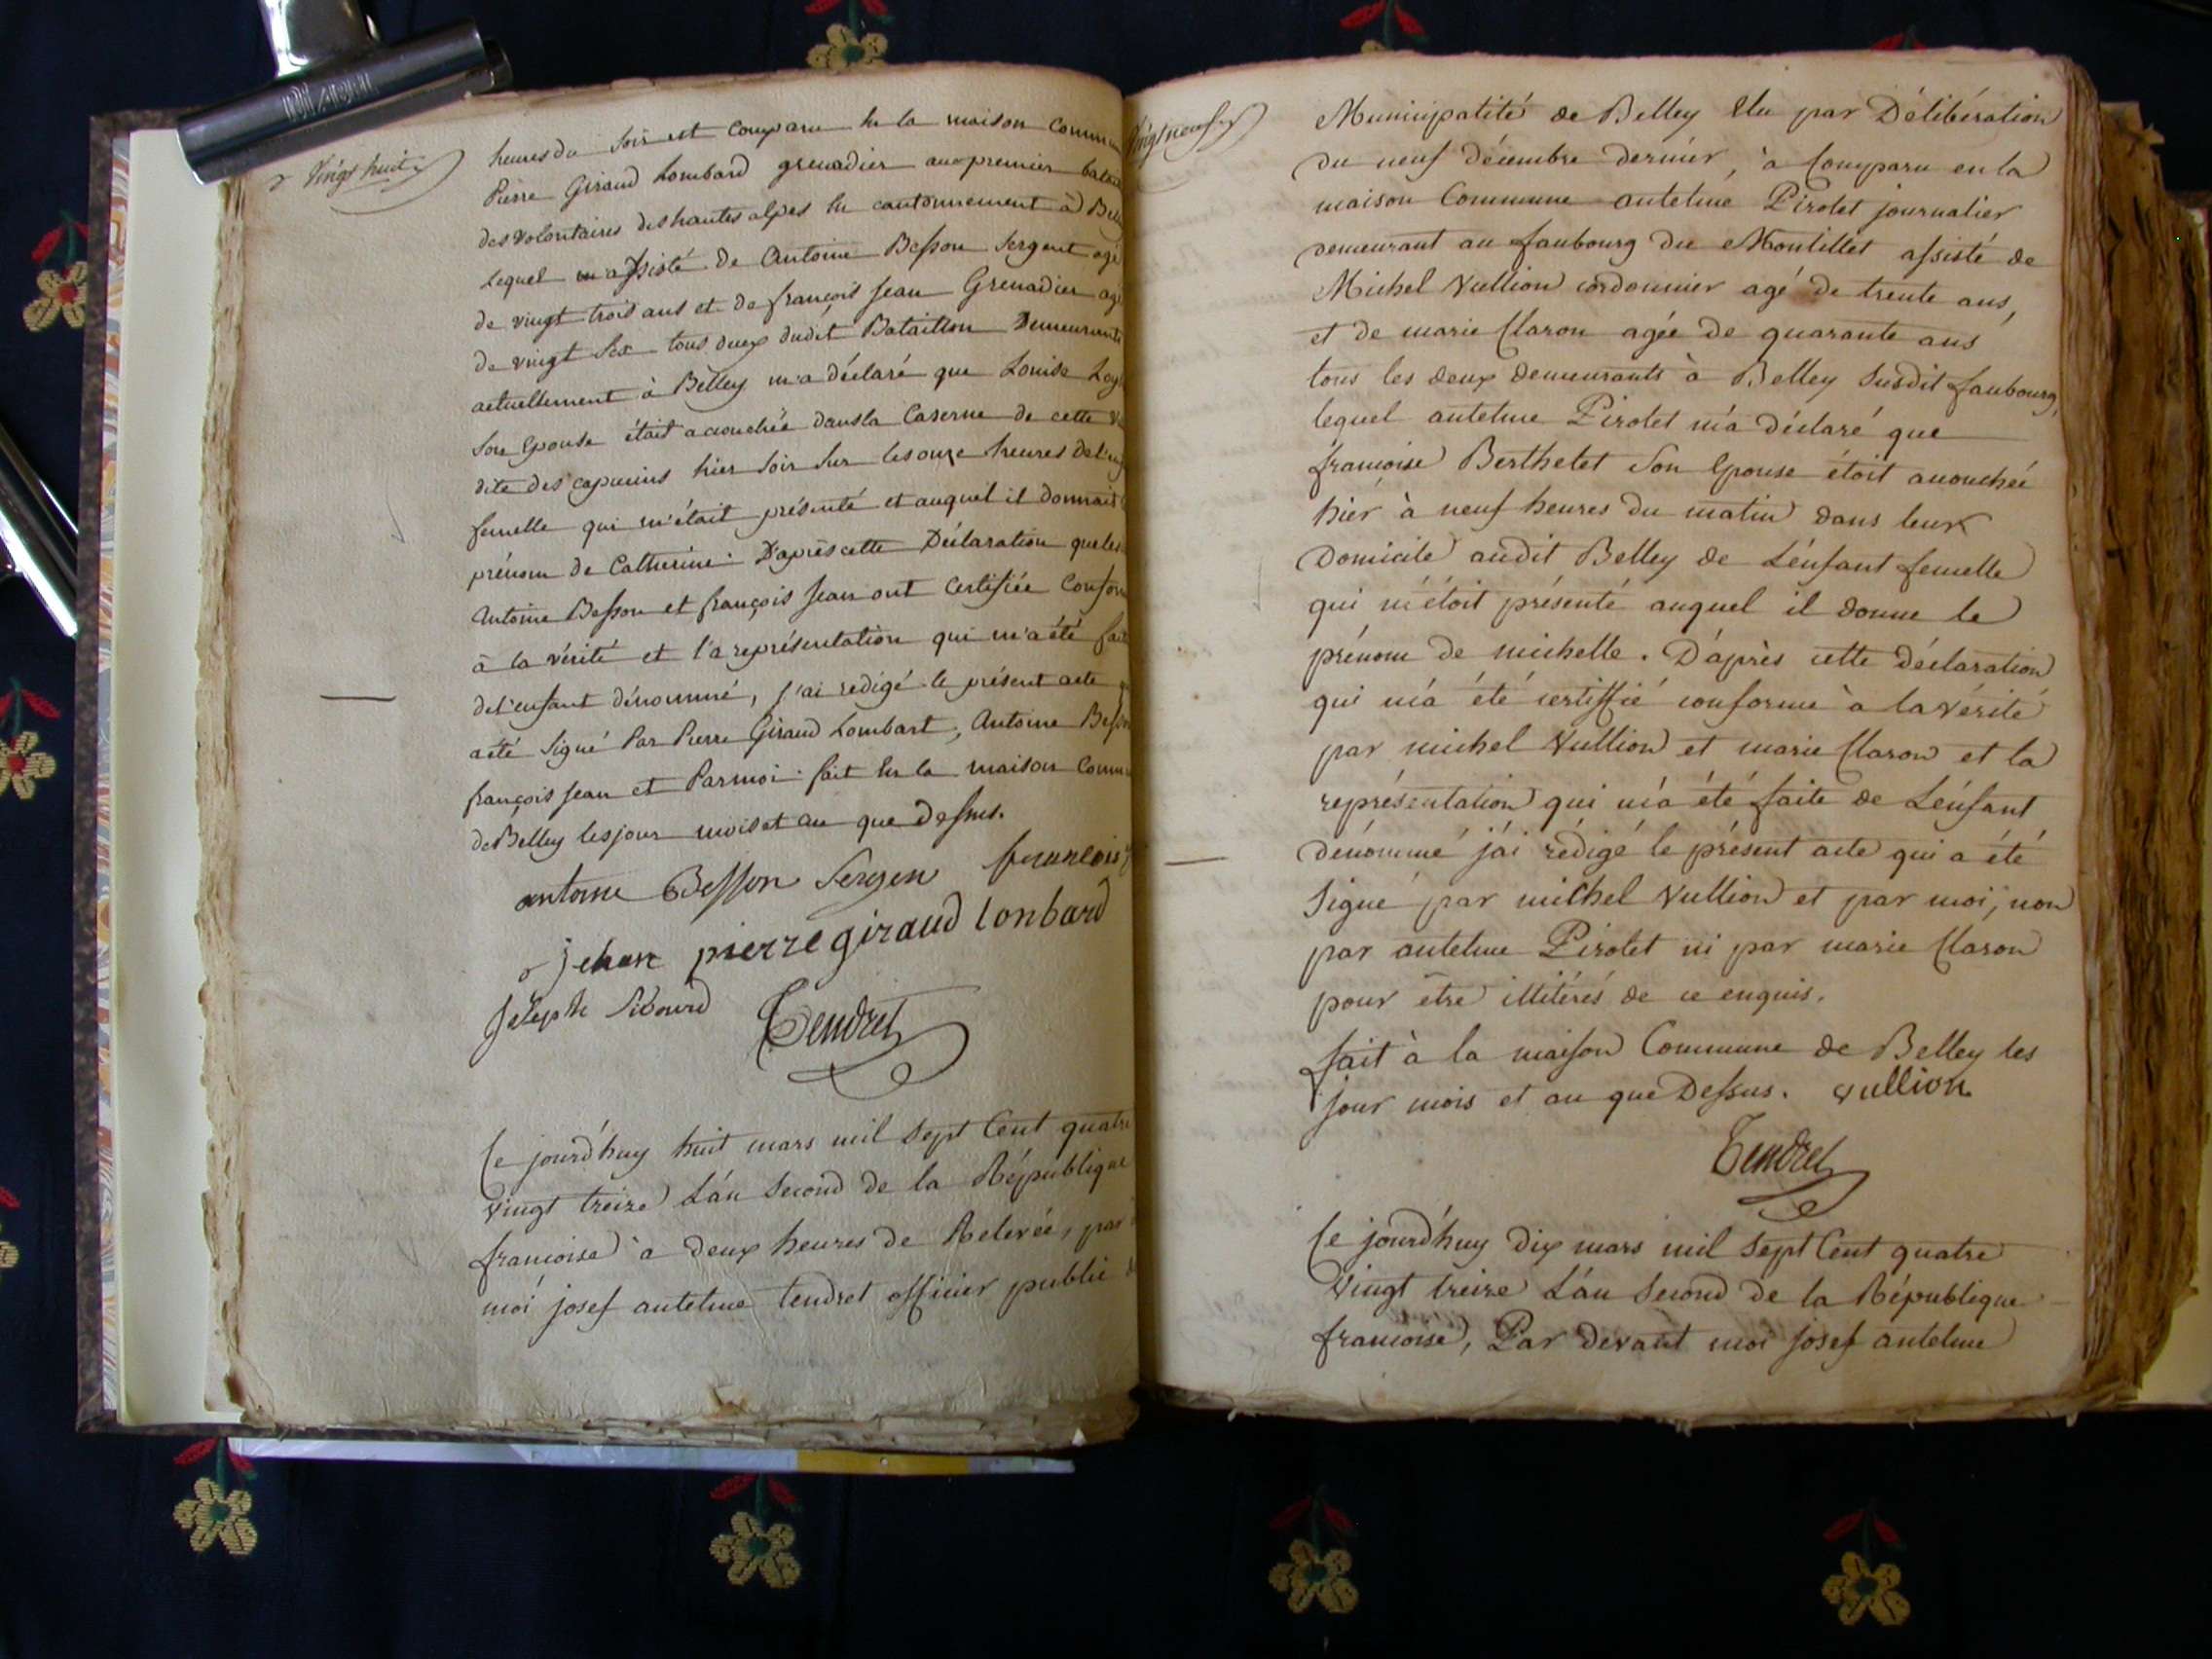 Vingt huit
heures du soir est comparu en la maison commu
Pierre Giraud Lombard grenadier au premier batai
des volontaires des hautes alpes en cantonnement à Belle
lequel assisté de Antoine Besson Sergent agé
de vingt trois ans et de françois Jean Grenadier agé
de vingt six tous deux dudit Bataillon Demeurants
actuellement à Belley m'a déclaré que Louise
Son Epouse était accouchée dans la Caserne de cette
dite des capucins hier soir sur les onze heures de l'en
femelle qui m'était présenté et auquel il donnait
prénom de Catherine. D'après cette Déclaration que les
Antoine Besson et françois Jean ont Certifiée Confor
à la vérité et la représentation qui m'a été fait
de l'enfant dénommé, j'ai redigé le présent acte
a été Signé Par Pierre Giraud Lombart, Antoine Besson
françois Jean et Par moi. fait en la maison Commu
de Belley les jour mois et an que dessus.
antoine Besson Sergen francois
jehan pierre giraud lonbard
Joseph Sibourd Tendret
Ce jourd'huy huit mars mil Sept Cent quatre
vingt treize L'án Second de la République
francoise à deux heures de Relevée, par
moi josef antelme tendret officier public
Vingt neuf
Municipalité de Belley Elu par Délibération
du neuf décembre dernier, à Comparu en la
maison Commune antelme Pirolet journalier
demeurant au faubourg du Montillet assisté de
Michel Vullion cordonnier agé de trente ans,
et de marie Claron agée de quarante ans
tous les deux demeurants à Belley Susdit faubourg,
lequel antelme Pirolet m'a déclaré que
francoise Berthelet Son Epouse étoit accouchée
hier à neuf heures du matin dans leur
Domicile audit Belley de L'énfant femelle
qui m'étoit présenté auquel il donne le
prénom de michelle. D'après cette déclaration
qui m'a été certiffié conforme à la vérité
par michel Vullion et marie Claron et la
représentation qui m'a été faite de L'énfant
dénommé j'ai rédigé le présent acte qui a été
Signé par michel Vullion et par moi, non
par antelme Pirolet ni par marie Claron
pour être illitérés de ce enquis.
fait à la maison Commune de Belley les
jour mois et an que Dessus. vullion
Tendret
Ce jourd'huy dix mars mil Sept Cent quatre
Vingt treize L'án Second de la République
francoise, Par devant moi josef antelme